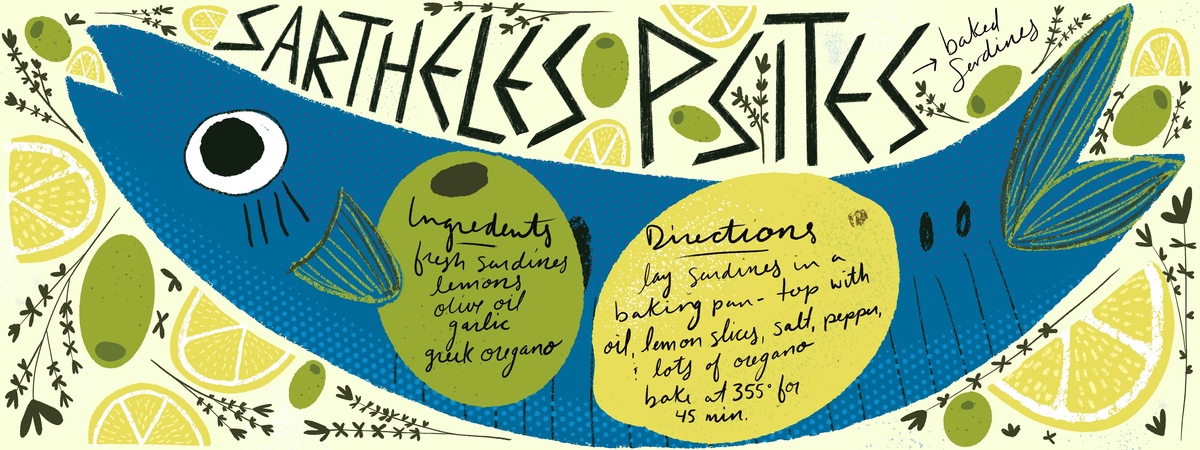 SARTHELES PSITES
→ baked
Sardines
Ingredients
fresh sardines
lemons
olive oil
garlic
greek oregano
Directions
lay sardines in a
baking pan - top with
oil, lemon slices, salt, pepper,
& lots of oregano
bake at 355° for
45 min.